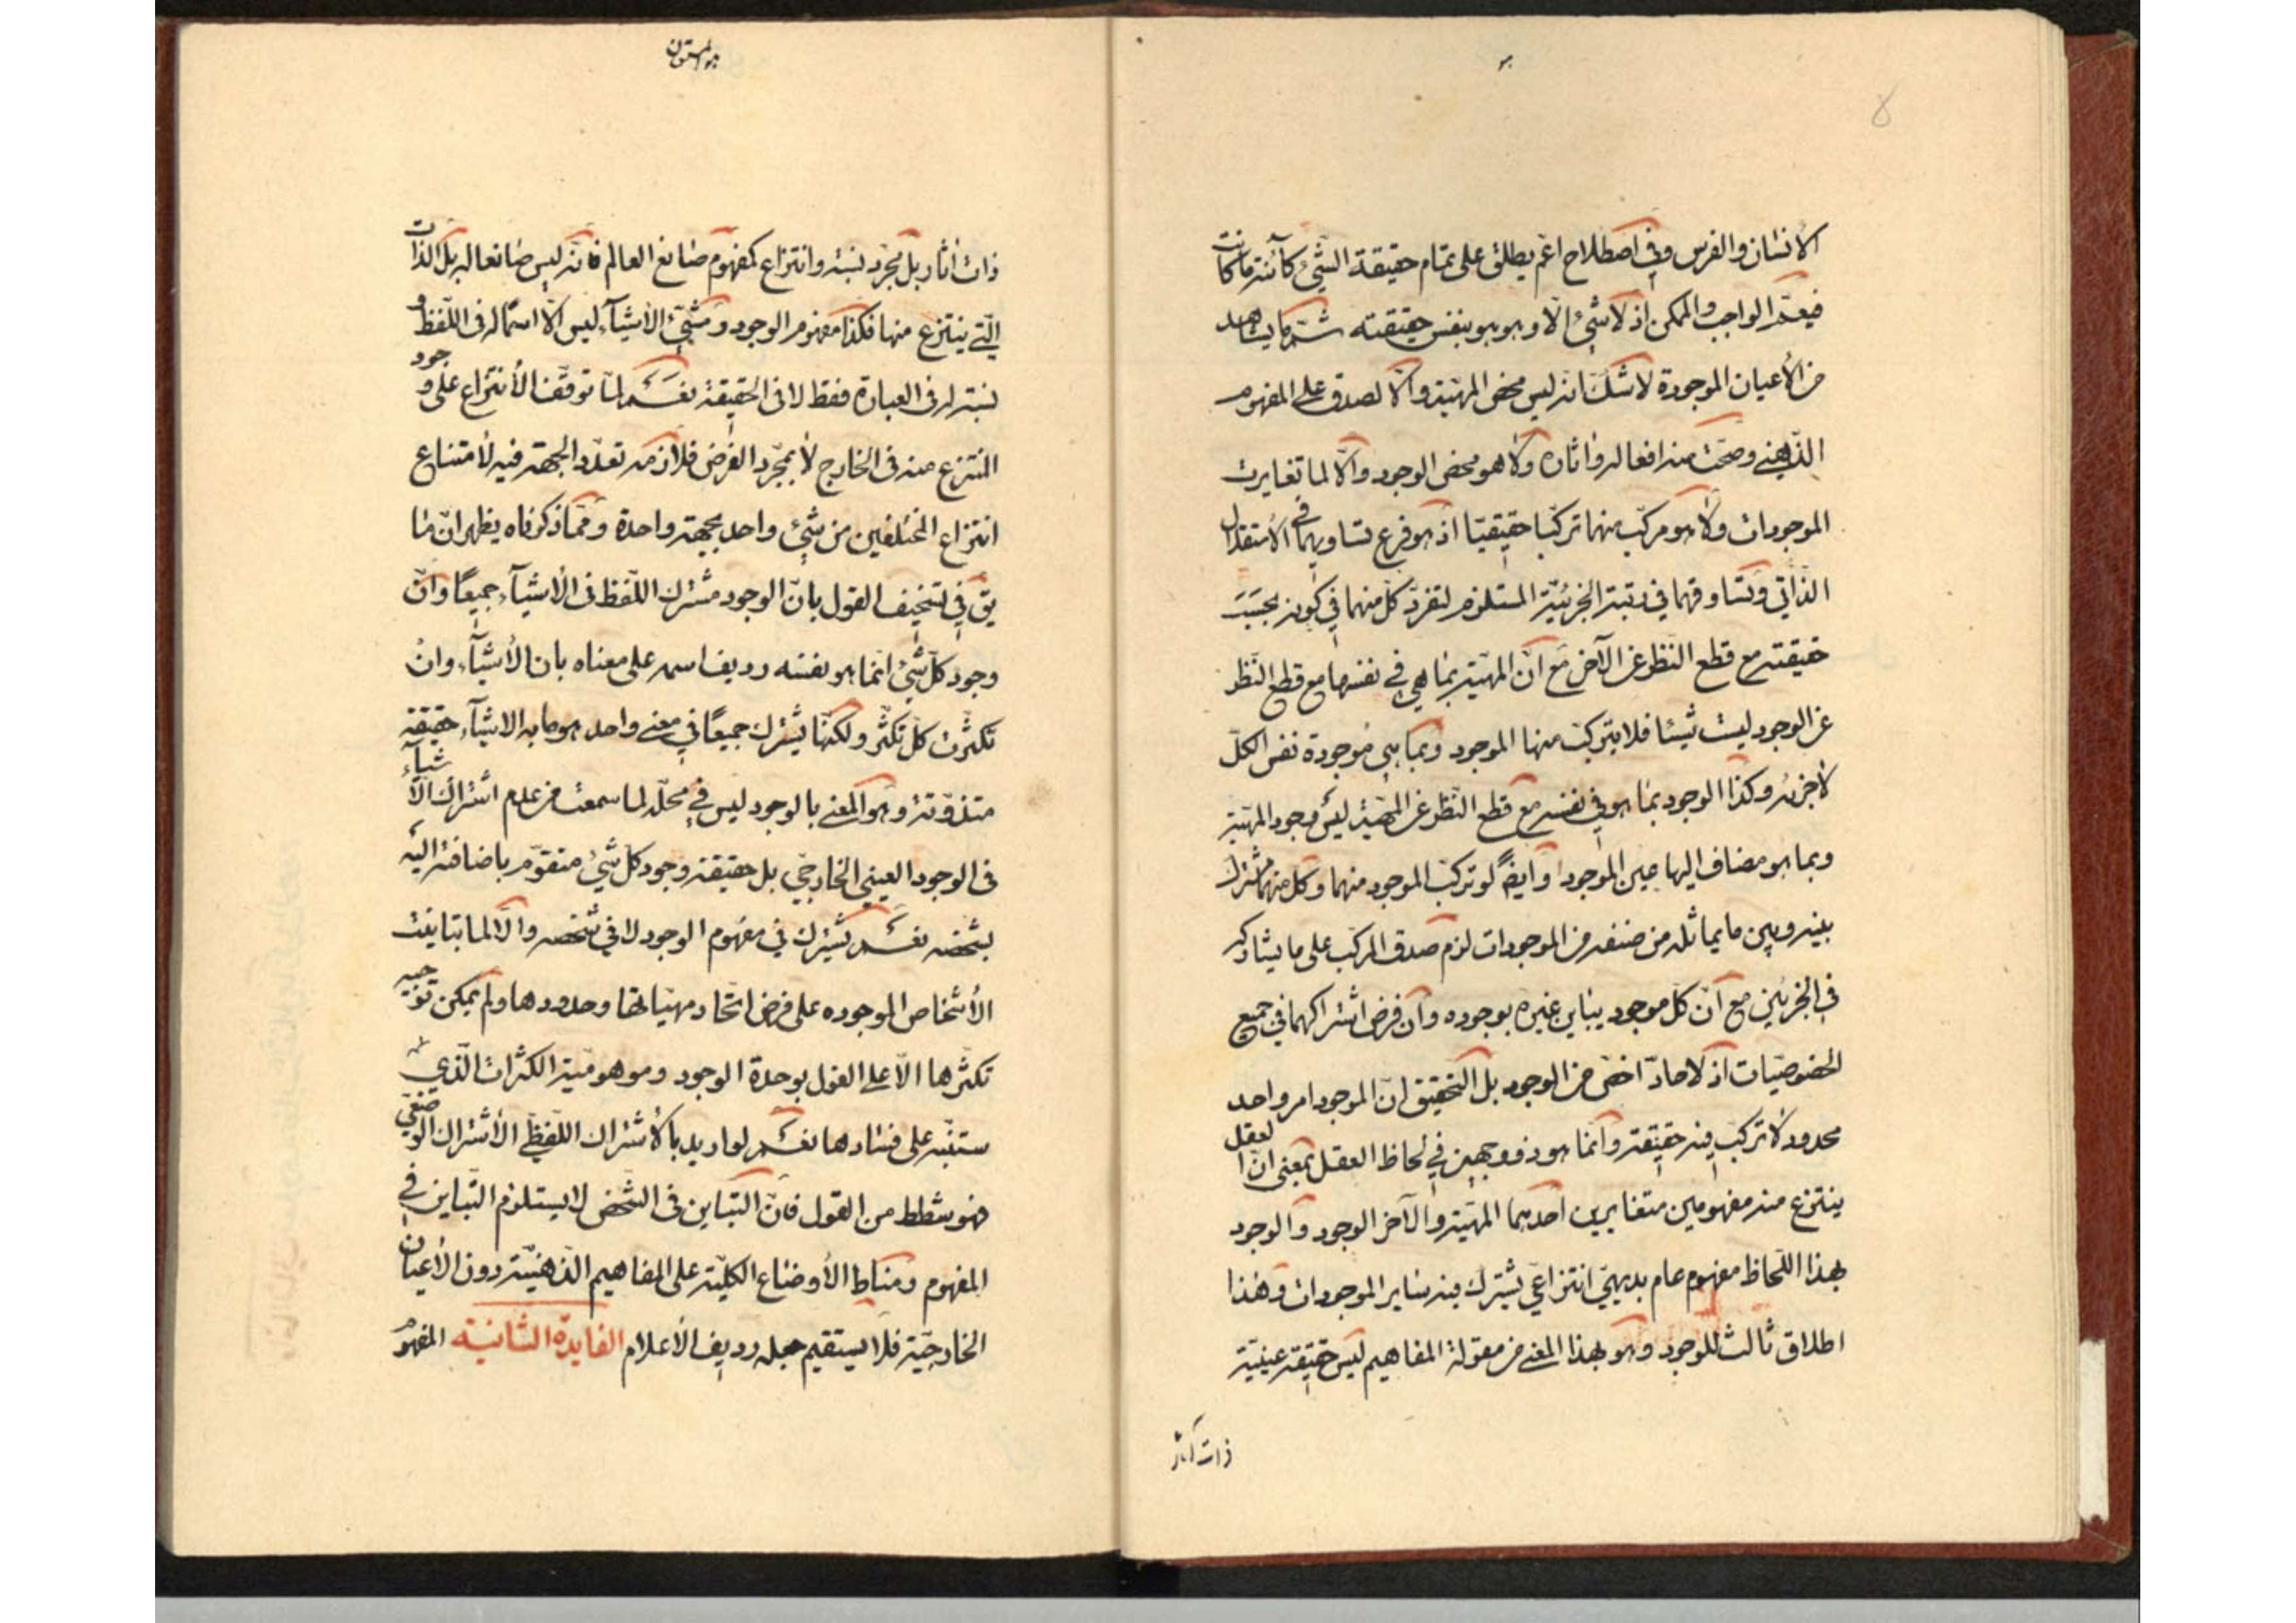 هو
٥
الانسان والفرس وفي اصطلاح اعم يطلق على تمام حقيقة الشيء كائنة ما كانت
فيعم الواجب والممكن اذ لا شيء الا وهو هو بنفس حقيقته ثم ما يشاهد
من الأعيان الموجودة لا شك انه ليس محض المهية والا لصدق على المفهوم
الذهني وصحت منه افعاله واثاره ولا هو محض الوجود والا لما تغايرت
الموجودات ولا هو مركب منهما تركبا حقيقيا اذ هو فرع تساويهما في الاستقلال
الذاتي وتساوقهما في رتبة الجزئية المستلزم لتفرد كل منهما في كونه بحسب
حقيقته مع قطع النظر عن الآخر مع ان المهية بما هي في نفسها مع قطع النظر
عن الوجود ليست شيئا فلا يتركب منها الموجود وبما هي موجودة نفس الكل
لا جزئه وكذا الوجود بما هو في نفسه مع قطع النظر عن المهية ليس وجود المهية
وبما هو مضاف اليها عين الموجود وايضا لو تركب الموجود منهما وكل منهما مشترك
بينه وبين ما يماثله من صنفه من الموجودات لزم صدق المركب على ما يشاركه
في الجزئين مع ان كل موجود يباين غيره بوجوده وان فرض اشتراكهما في جميع
الخصوصيات اذ لا حاد اخص من الوجود بل التحقيق ان الموجود امر واحد
محدود لا تركب فيه حقيقة وانما هو ذو وجهين في لحاظ العقل بمعنى ان العقل
ينتزع منه مفهومين متغايرين احدهما المهية والآخر الوجود والوجود
بهذا اللحاظ مفهوم عام بديهي انتزاعي يشترك فيه ساير الموجودات وهذا
اطلاق ثالث للوجود وهو بهذا المعنى من مقولة المفاهيم ليس حقيقة عينية
ذات آثار
هو المستعان
ذات اثار بل مجرد نسبة وانتزاع كمفهوم صانع العالم فانه ليس صانعا له بل الذات
التي ينتزع منها فكذا مفهوم الوجود ومشيئ الأشيآء ليس الا اسما له في اللفظ و
نسبة له في العبارة فقط لا في الحقيقة نعم لما توقف الأنتزاع على وجود
المنتزع منه في الخارج لا بمجرد الفرض فلازمه تعدد الجهة فيه لأمتناع
انتزاع المختلفين من شيء واحد بجهة واحدة ومما ذكرناه يظهر ان ما
يق في تسخيف القول بان الوجود مشترك اللفظ في الأشيآء جميعا وان
وجود كل شيء انما هو نفسه رديف اسمه على معناه بان الأشيآء وان
تكثرت كل تكثر ولكنها يشترك جميعا في معنى واحد هو ما به الاشيآء حقيقة
متذوتة وهو المعني بالوجود ليس في محله لما سمعت من عدم اشتراك الأشيآء
في الوجود العيني الخارجي بل حقيقة وجود كل شيء متقوم باضافته اليه
بشخصه نعم يشترك في مفهوم الوجود لا في شخصه والا لما تباينت
الأشخاص الموجوده على فرض اتحاد مهياتها وحدودها ولم يمكن توجيه
تكثرها الا على القول بوحدة الوجود وموهومية الكثرات الذي
ستنبه على فسادها نعم لو اريد بالأشتراك اللفظي الأشتراك الوضعي
فهو شطط من القول فان التباين في الشخص لا يستلزم التباين في
المفهوم ومناط الأوضاع الكلية على المفاهيم الذهنية دون الأعيان
الخارجية فلا يستقيم جعله رديف الأعلام الفايدة الثانية المفهوم